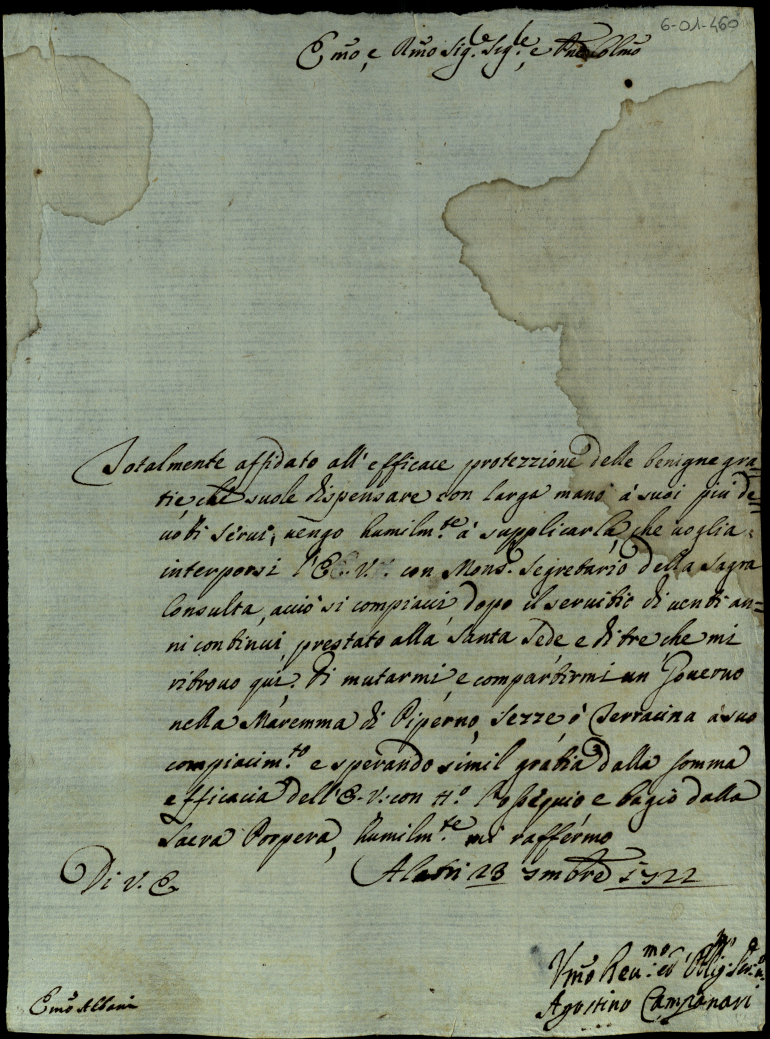 6-01-460
Em̃o, e Rm̃o Sig.re Sig.re, e Pne Colm̃o
Totalmente affidato all'efficace protezzione delle benigne gra=
tie, che suole dispensare con larga mano à suoi più de=
uoti serui, uengo humilm.te à supplicarla che uoglia
interporsi l'E.V. con Mons.r Segretario della Sagra
Consulta, acciò si compiacci dopo il seruitio di uenti an=
ni continui, prestato alla Santa Sede e di tre che mi
ritrouo qui, di mutarmi, e compartirmi un Gouerno
nella Maremma di Piperno, Sezze, ò Terracina à suo
compiacim.to e sperando simil gratia dalla somma
efficacia dell'E.V. con H.o l'ossequio e bagio della
Sacra Porpora, humilm.te mi raffermo
Di V. E. Alatri 23 7mbre 1722
Vm̃o Reu.mo ed Obblig. Ser.
Agostino Campanari
Em̃o Albani